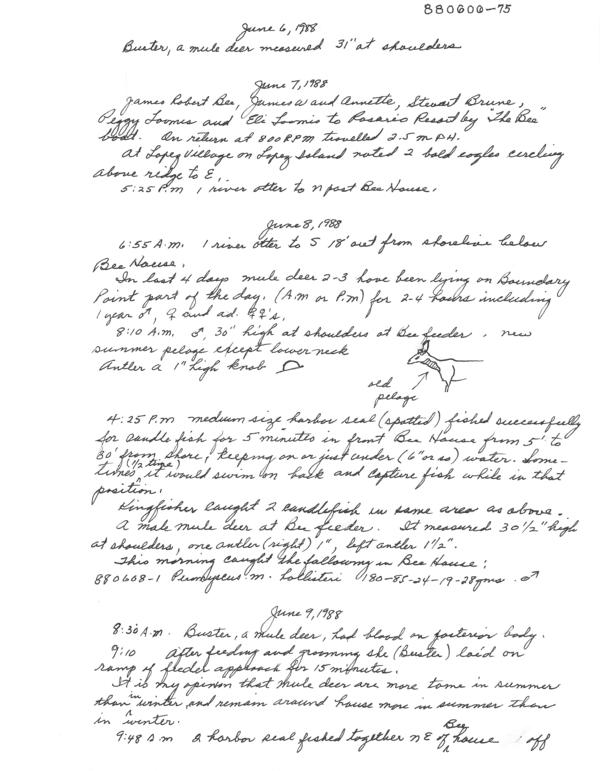 880606-75
June 6, 1988
Buster, a mule deer measured 31" at shoulders
June 7, 1988
James Robert Bee, James W and Annette, Stewart Brune,
Peggy Loomis and Eli Loomis to Rosario Resort by "The Bee"
boat. On return at 800 RPM travelled 2.5 MPH.
At Lopez Village on Lopez Island noted 2 bald eagles circling
above ridge to E.
5:25 P.m 1 river otter to N past Bee House.
June 8, 1988
6:55 A.m. 1 river otter to S 18' out from shoreline below
Bee House.
In last 4 days mule deer 2-3 have been lying on Boundary
Point part of the day. (A.m or P.m) for 2-4 hours including
1 year ♂, ♀ and ad. ♀♀'s.
8:10 A.m. ♂, 30" high at shoulders at Bee feeder. new
summer pelage except lower neck
Antler a 1" high knob
old
pelage
4:25 P.m medium size harbor seal (spotted) fished successfully
for candle fish for 5 minutes in front Bee House from 5' to
30' from shore, keeping on or just under (6" or so) water. Some-
times (1/2 time) it would swim on back and capture fish while in that
position.
Kingfisher caught 2 candlefish in same area as above.
A male mule deer at Bee feeder. It measured 30 1/2" high
at shoulders, one antler (right) 1", left antler 1 1/2".
This morning caught the following in Bee House:
880608-1 Peromyscus m. hollisteri 180-85-24-19-28gms. ♂
June 9, 1988
8:30 A.m. Buster, a mule deer, had blood on posterior body.
9:10 After feeding and grooming she (Buster) laid on
ramp of feeder approach for 15 minutes.
It is my opinion that mule deer are more tame in summer
than in winter and remain around house more in summer than
in winter.
9:48 A m 2 harbor seal fished together NE of Bee house off